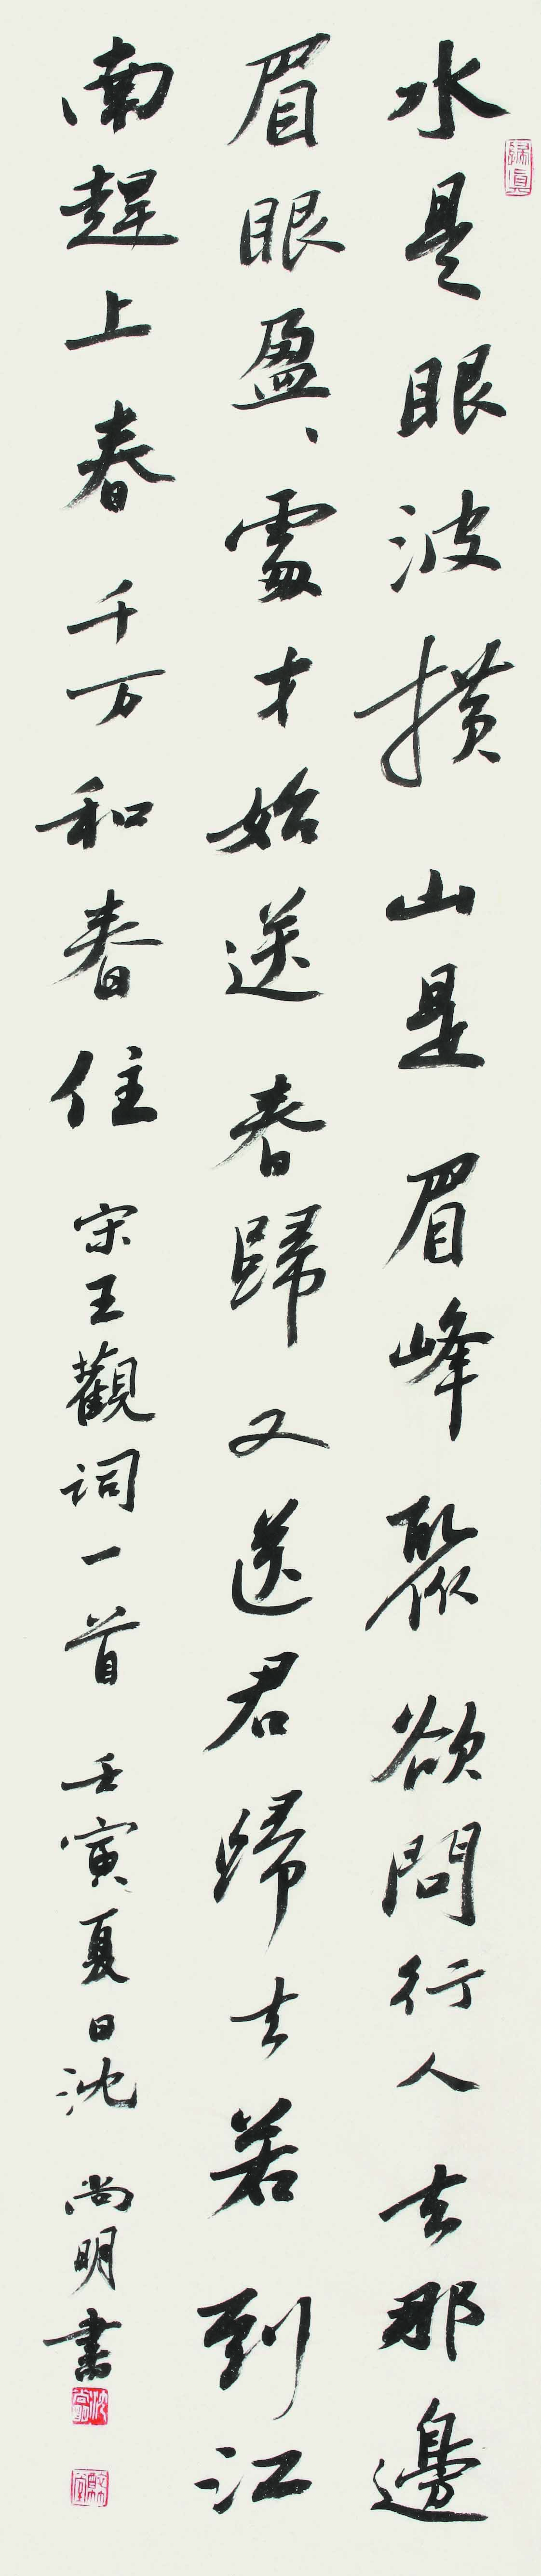 水是眼波横山是眉峰聚欲問行人去那邊
眉眼盈、處才始送春歸又送君歸去若到江
南趕上春千万和春住 宋王觀詞一首 壬寅夏日沈尚明書